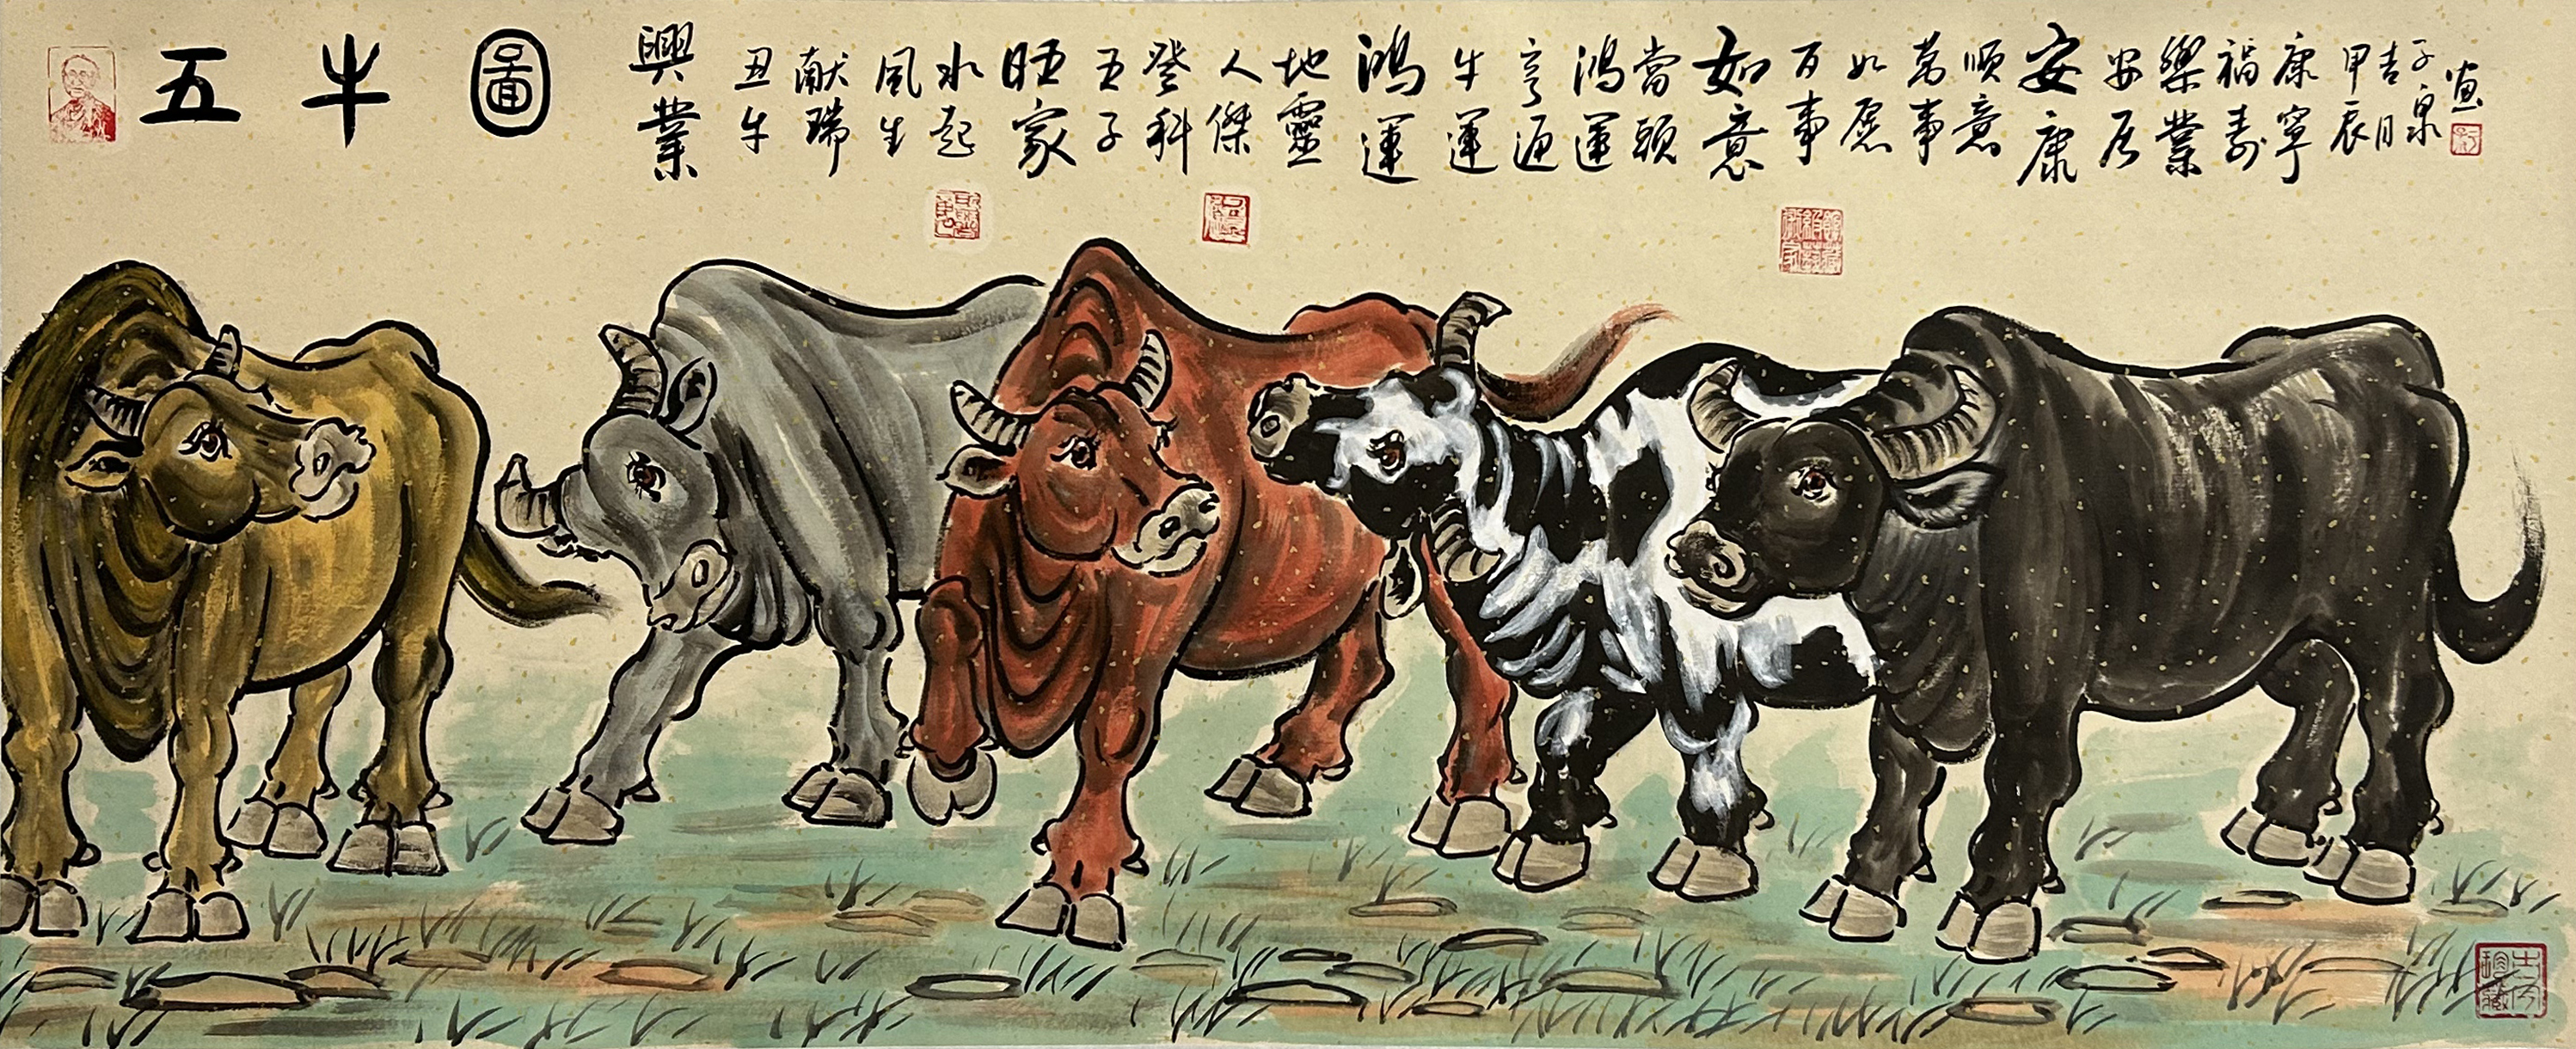 五牛圖
興業
丑牛
献瑞
風生
水起
旺家
五子
登科
人傑
地靈
鴻運
牛運
亨通
鴻運
當頭
如意
百事
如愿
萬事
順意
安康
安居
樂業
福壽
康寧
甲辰
吉月
子泉
画